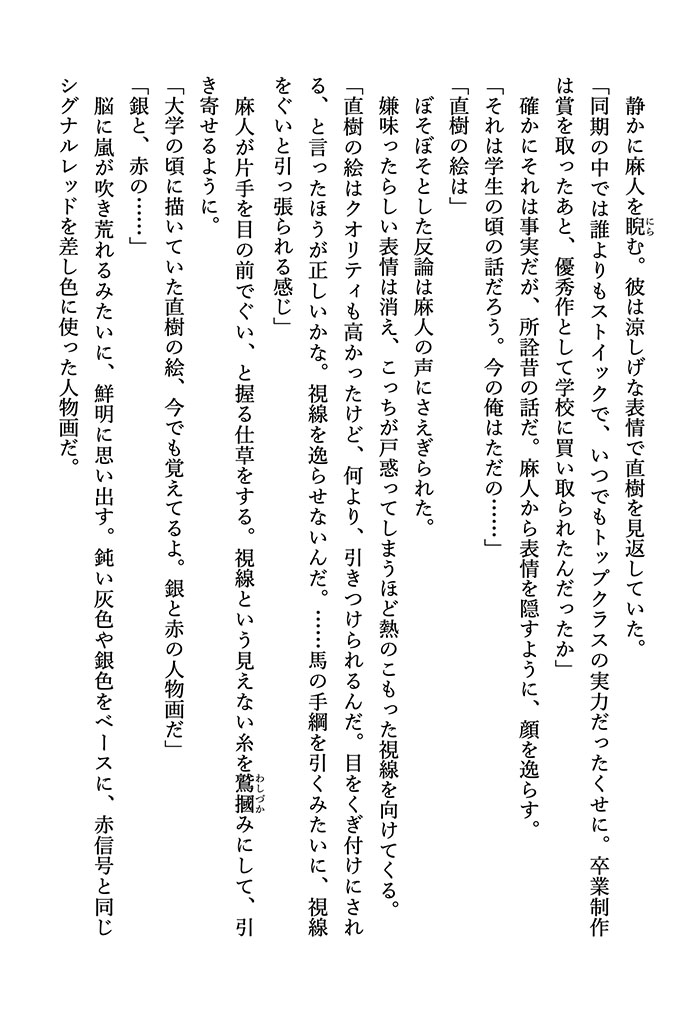 静かに麻人を睨む。彼は涼しげな表情で直樹を見返していた。
「同期の中では誰よりもストイックで、いつでもトップクラスの実力だったくせに。卒業制作
は賞を取ったあと、優秀作として学校に買い取られたんだったか」
確かにそれは事実だが、所詮昔の話だ。麻人から表情を隠すように、顔を逸らす。
「それは学生の頃の話だろう。今の俺はただの……」
「直樹の絵は」
ぼそぼそとした反論は麻人の声にさえぎられた。
嫌味ったらしい表情は消え、こっちが戸惑ってしまうほど熱のこもった視線を向けてくる。
「直樹の絵はクオリティも高かったけど、何より、引きつけられるんだ。目をくぎ付けにされ
る、と言ったほうが正しいかな。視線を逸らせないんだ。……馬の手綱を引くみたいに、視線
をぐいと引っ張られる感じ」
麻人が片手を目の前でぐい、と握る仕草をする。視線という見えない糸を鷲摑みにして、引
き寄せるように。
「大学の頃に描いていた直樹の絵、今でも覚えてるよ。銀と赤の人物画だ」
「銀と、赤の……」
脳に嵐が吹き荒れるみたいに、鮮明に思い出す。鈍い灰色や銀色をベースに、赤信号と同じ
シグナルレッドを差し色に使った人物画だ。
にら
わしづか